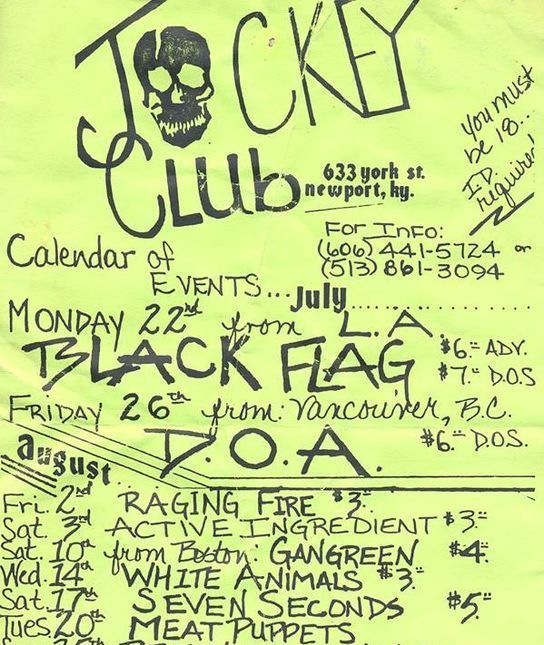 JOCKEY
CLUB
633 york st.
newport, ky.
You must
be 18...
I.D.
required
For Info:
(606) 441-5724 or
(513) 861-3094
Calendar of
EVENTS... July
MONDAY 22nd from L.A.
BLACK FLAG $6.= ADV.
$7.= D.O.S
FRIDAY 26th from: Vancouver, B.C.
D.O.A. $6.= D.O.S.
august
Fri. 2nd RAGING FIRE $3.=
Sat. 3rd ACTIVE INGREDIENT $3.=
Sat. 10th from Boston: GANGREEN $4.=
Wed. 14th WHITE ANIMALS $3.=
Sat. 17th SEVEN SECONDS $5.=
Tues. 20th MEAT PUPPETS